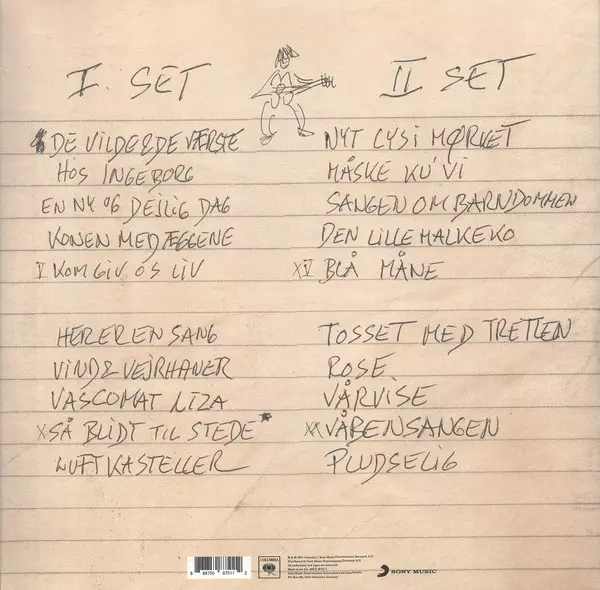 I. SET
DE VILDE & DE VÆRSTE
HOS INGEBORG
EN NY OG DEILIG DAG
KONEN MED ÆGGENE
V KOM GIV OS LIV
HER ER EN SANG
VIND & VEJRHANER
VASCOMAT LIZA
X SÅ BLIDT TIL STEDE *
LUFTKASTELLER
II SET
NYT LYS I MØRKET
MÅSKE KU' VI
SANGEN OM BARNDOMMEN
DEN LILLE MALKEKO
XV BLÅ MÅNE
TOSSET MED TRETTEN
ROSE
VÅRVISE
XX VÅBENSANGEN
PLUDSELIG
COLUMBIA
SONY MUSIC